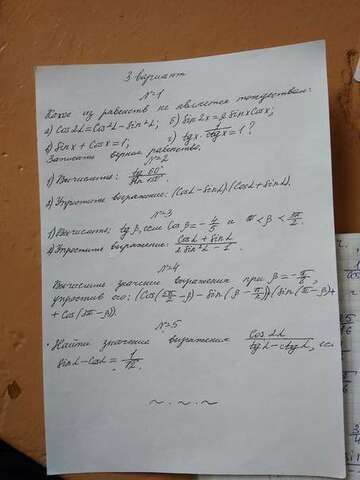 3 вариант
№1
Какое из равенств не является тождеством:
а) Cos2α=Cos²α-Sin²α; б) Sin2x=2SinxCosx;
в) Sinx+Cosx=1; г) tgx·ctgx=1?
Запишите верное равенство.
№2
1) Вычислите:
2) Упростите выражение: (Cosα-Sinα)(Cosα+Sinα).
№3
1) Вычислить, tgβ, если Cosβ=-4/5 и π<β<3π/2.
2) Упростите выражение: (Cosα+Sinα)/(2Sin²α-1).
№4
Вычислите значение выражения при β=-π/6,
упростив его: (Cos(3π/2-β)-Sin(β-π/2))(Sin(π-β)+
+Cos(2π-β))
№5
Найти значение выражения Cos2α/(tgα-ctgα), если
Sinα-Cosα=
~.~.~